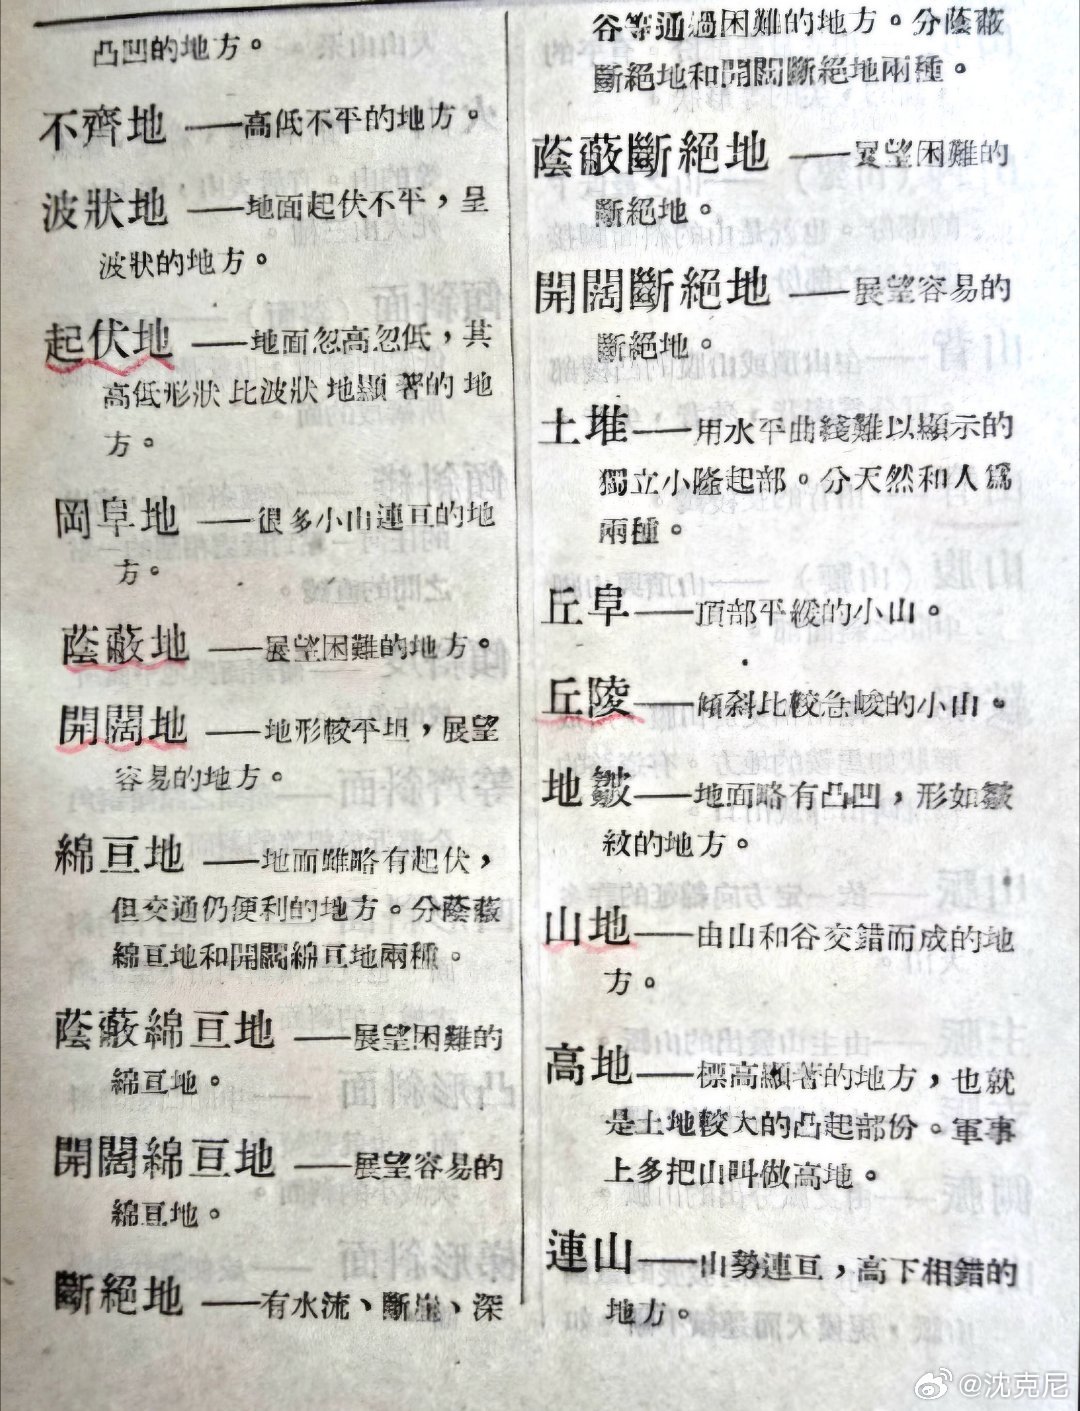 凸凹的地方。
不齊地——高低不平的地方。
波狀地——地面起伏不平，呈
波狀的地方。
起伏地——地面忽高忽低，其
高低形狀比波狀地顯著的地
方。
岡阜地——很多小山連亘的地
方。
蔭蔽地——展望困難的地方。
開闊地——地形較平坦，展望
容易的地方。
綿亘地——地面雖略有起伏，
但交通仍便利的地方。分蔭蔽
綿亘地和開闊綿亘地兩種。
蔭蔽綿亘地——展望困難的
綿亘地。
開闊綿亘地——展望容易的
綿亘地。
斷絕地——有水流、斷崖、深
谷等通過困難的地方。分蔭蔽
斷絕地和開闊斷絕地兩種。
蔭蔽斷絕地——展望困難的
斷絕地。
開闊斷絕地——展望容易的
斷絕地。
土堆——用水平曲綫難以顯示的
獨立小隆起部。分天然和人爲
兩種。
丘阜——頂部平緩的小山。
丘陵——傾斜比較急峻的小山。
地皺——地面略有凸凹，形如皺
紋的地方。
山地——由山和谷交錯而成的地
方。
高地——標高顯著的地方，也就
是土地較大的凸起部份。軍事
上多把山叫做高地。
連山——山勢連亘，高下相錯的
地方。
@沈克尼